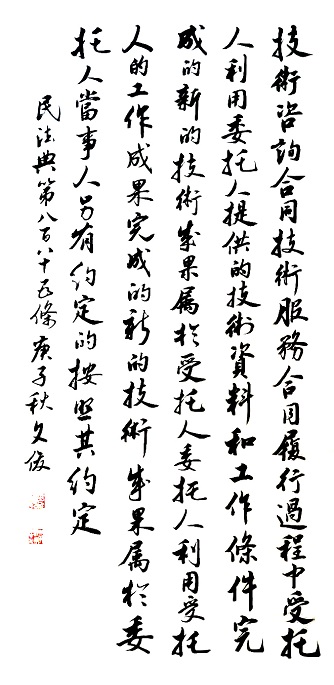 技術咨詢合同技術服務合同履行過程中受托
人利用委托人提供的技術資料和工作條件完
成的新的技術成果属於受托人委托人利用受托
人的工作成果完成的新的技術成果属於委
托人當事人另有約定的按照其約定
民法典第八百八十五條庚子秋文俊